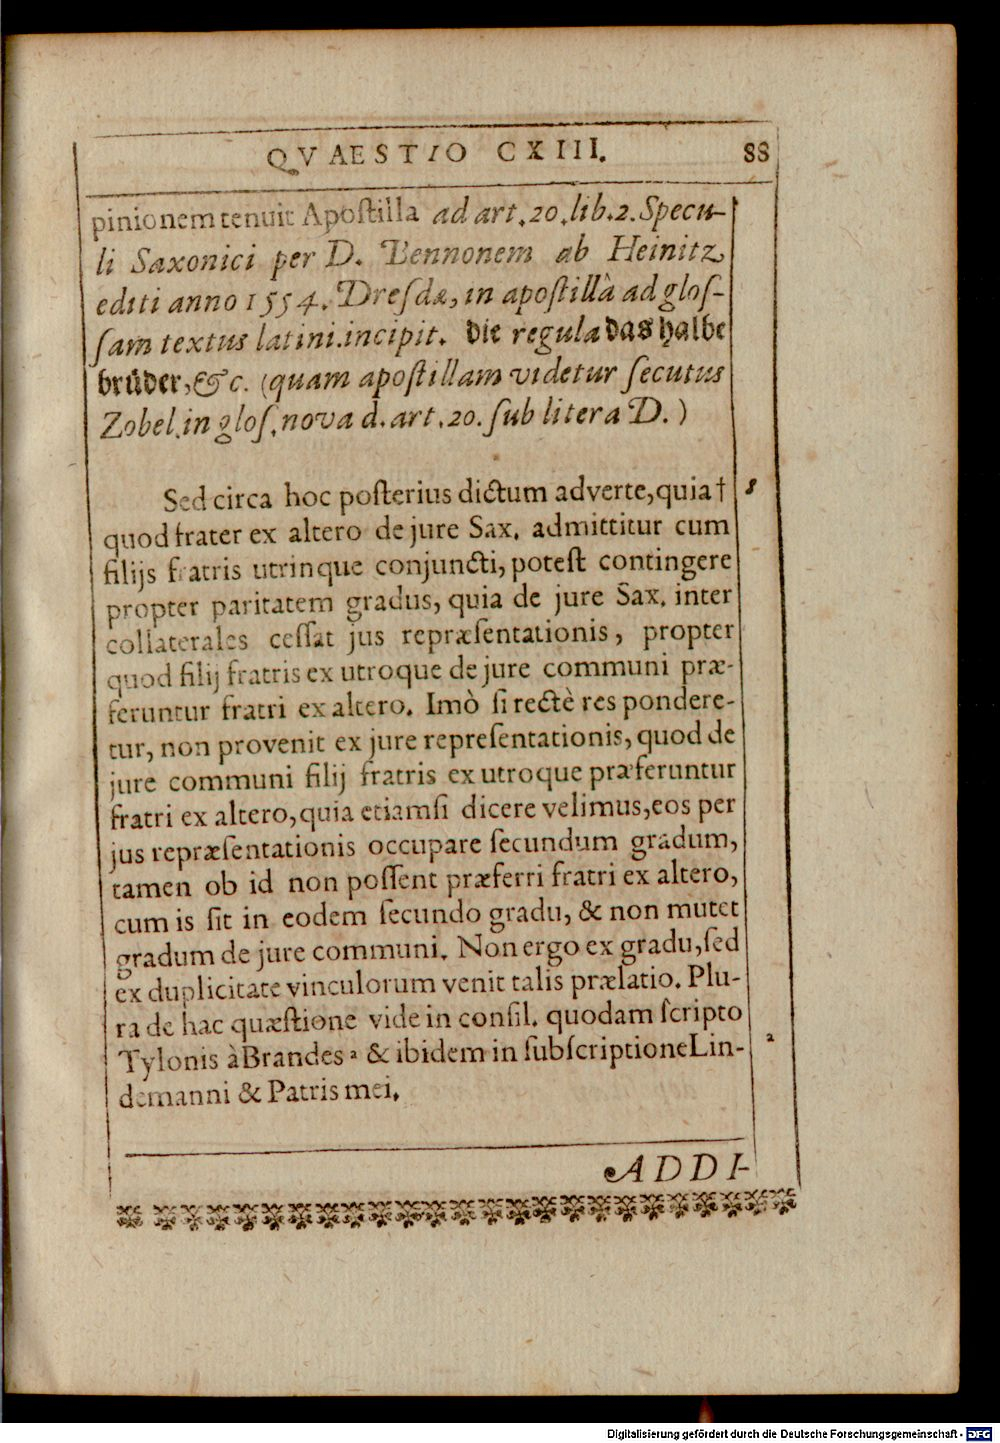 QVAESTIO CXIII. 88
pinionem tenuit Apoſtilla ad art. 20. lib. 2. Specu-
li Saxonici per D. Bennonem ab Heinitz,
editi anno 1554. Dreſdæ, in apoſtillà ad gloſ-
ſam textus latini. incipit. Die regula das halbe
brüder, &c. (quam apoſtillam videtur ſecutus
Zobel. in gloſ. nova d. art. 20. ſub litera D.)
Sed circa hoc poſterius dictum adverte, quia † 8
quod frater ex altero de jure Sax. admittitur cum
filijs fratris utrinque conjuncti, poteſt contingere
propter paritatem gradus, quia de jure Sax. inter
collaterales ceſſat jus repræſentationis, propter
quod filij fratris ex utroque de jure communi præ-
feruntur fratri ex altero. Imò ſi rectè res pondere-
tur, non provenit ex jure repreſentationis, quod de
jure communi filij fratris ex utroque præferuntur
fratri ex altero, quia etiamſi dicere velimus, eos per
jus repræſentationis occupare ſecundum gradum,
tamen ob id non poſſent præferri fratri ex altero,
cum is ſit in eodem ſecundo gradu, & non mutet
gradum de jure communi. Non ergo ex gradu, ſed
ex duplicitate vinculorum venit talis prælatio. Plu-
ra de hac quæſtione vide in conſil. quodam ſcripto
Tylonis à Brandes ² & ibidem in ſubſcriptione Lin- ²
demanni & Patris mei.
ADDI-
Digitalisierung gefördert durch die Deutsche Forschungsgemeinschaft - DFG